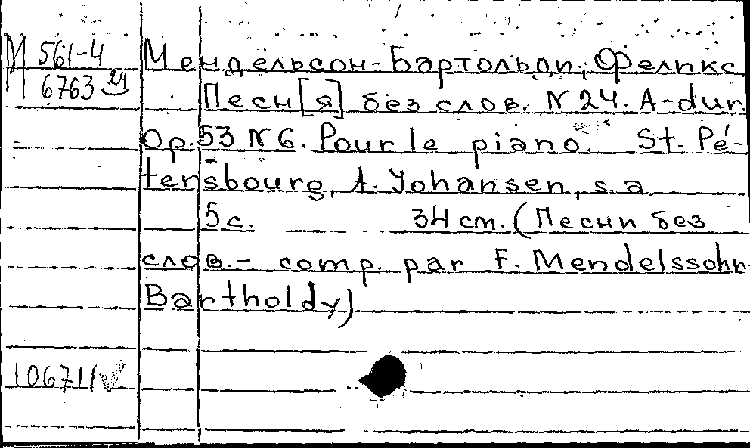 М 561-4
6763
Мендельсон-Бартольди, Феликс
Песн[я] без слов. N 24. A-dur.
Op. 53 N 6. Pour le piano. St. Pé-
tersbourg, A. Johansen, s.a.
5 с. 34 см. (Песни без
слов. - comp. par F. Mendelssohn
Bartholdy)
10671